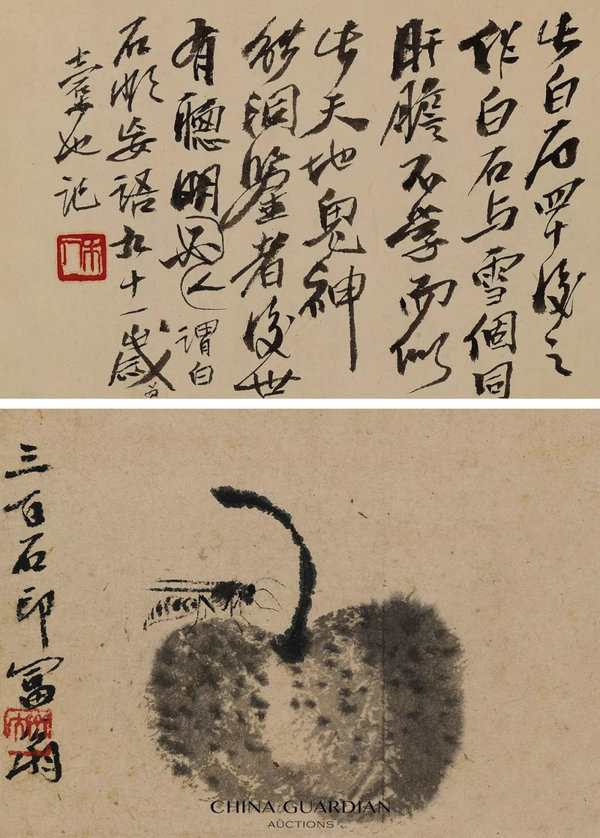 此白石四十後之
作白石与雪個同
肝膽不學而似
此天地鬼神
能洞鑒者後世
有聰明必人謂白
石非妄語九十一歲
也記
木人
三百石印富翁
CHINA GUARDIAN
AUCTIONS